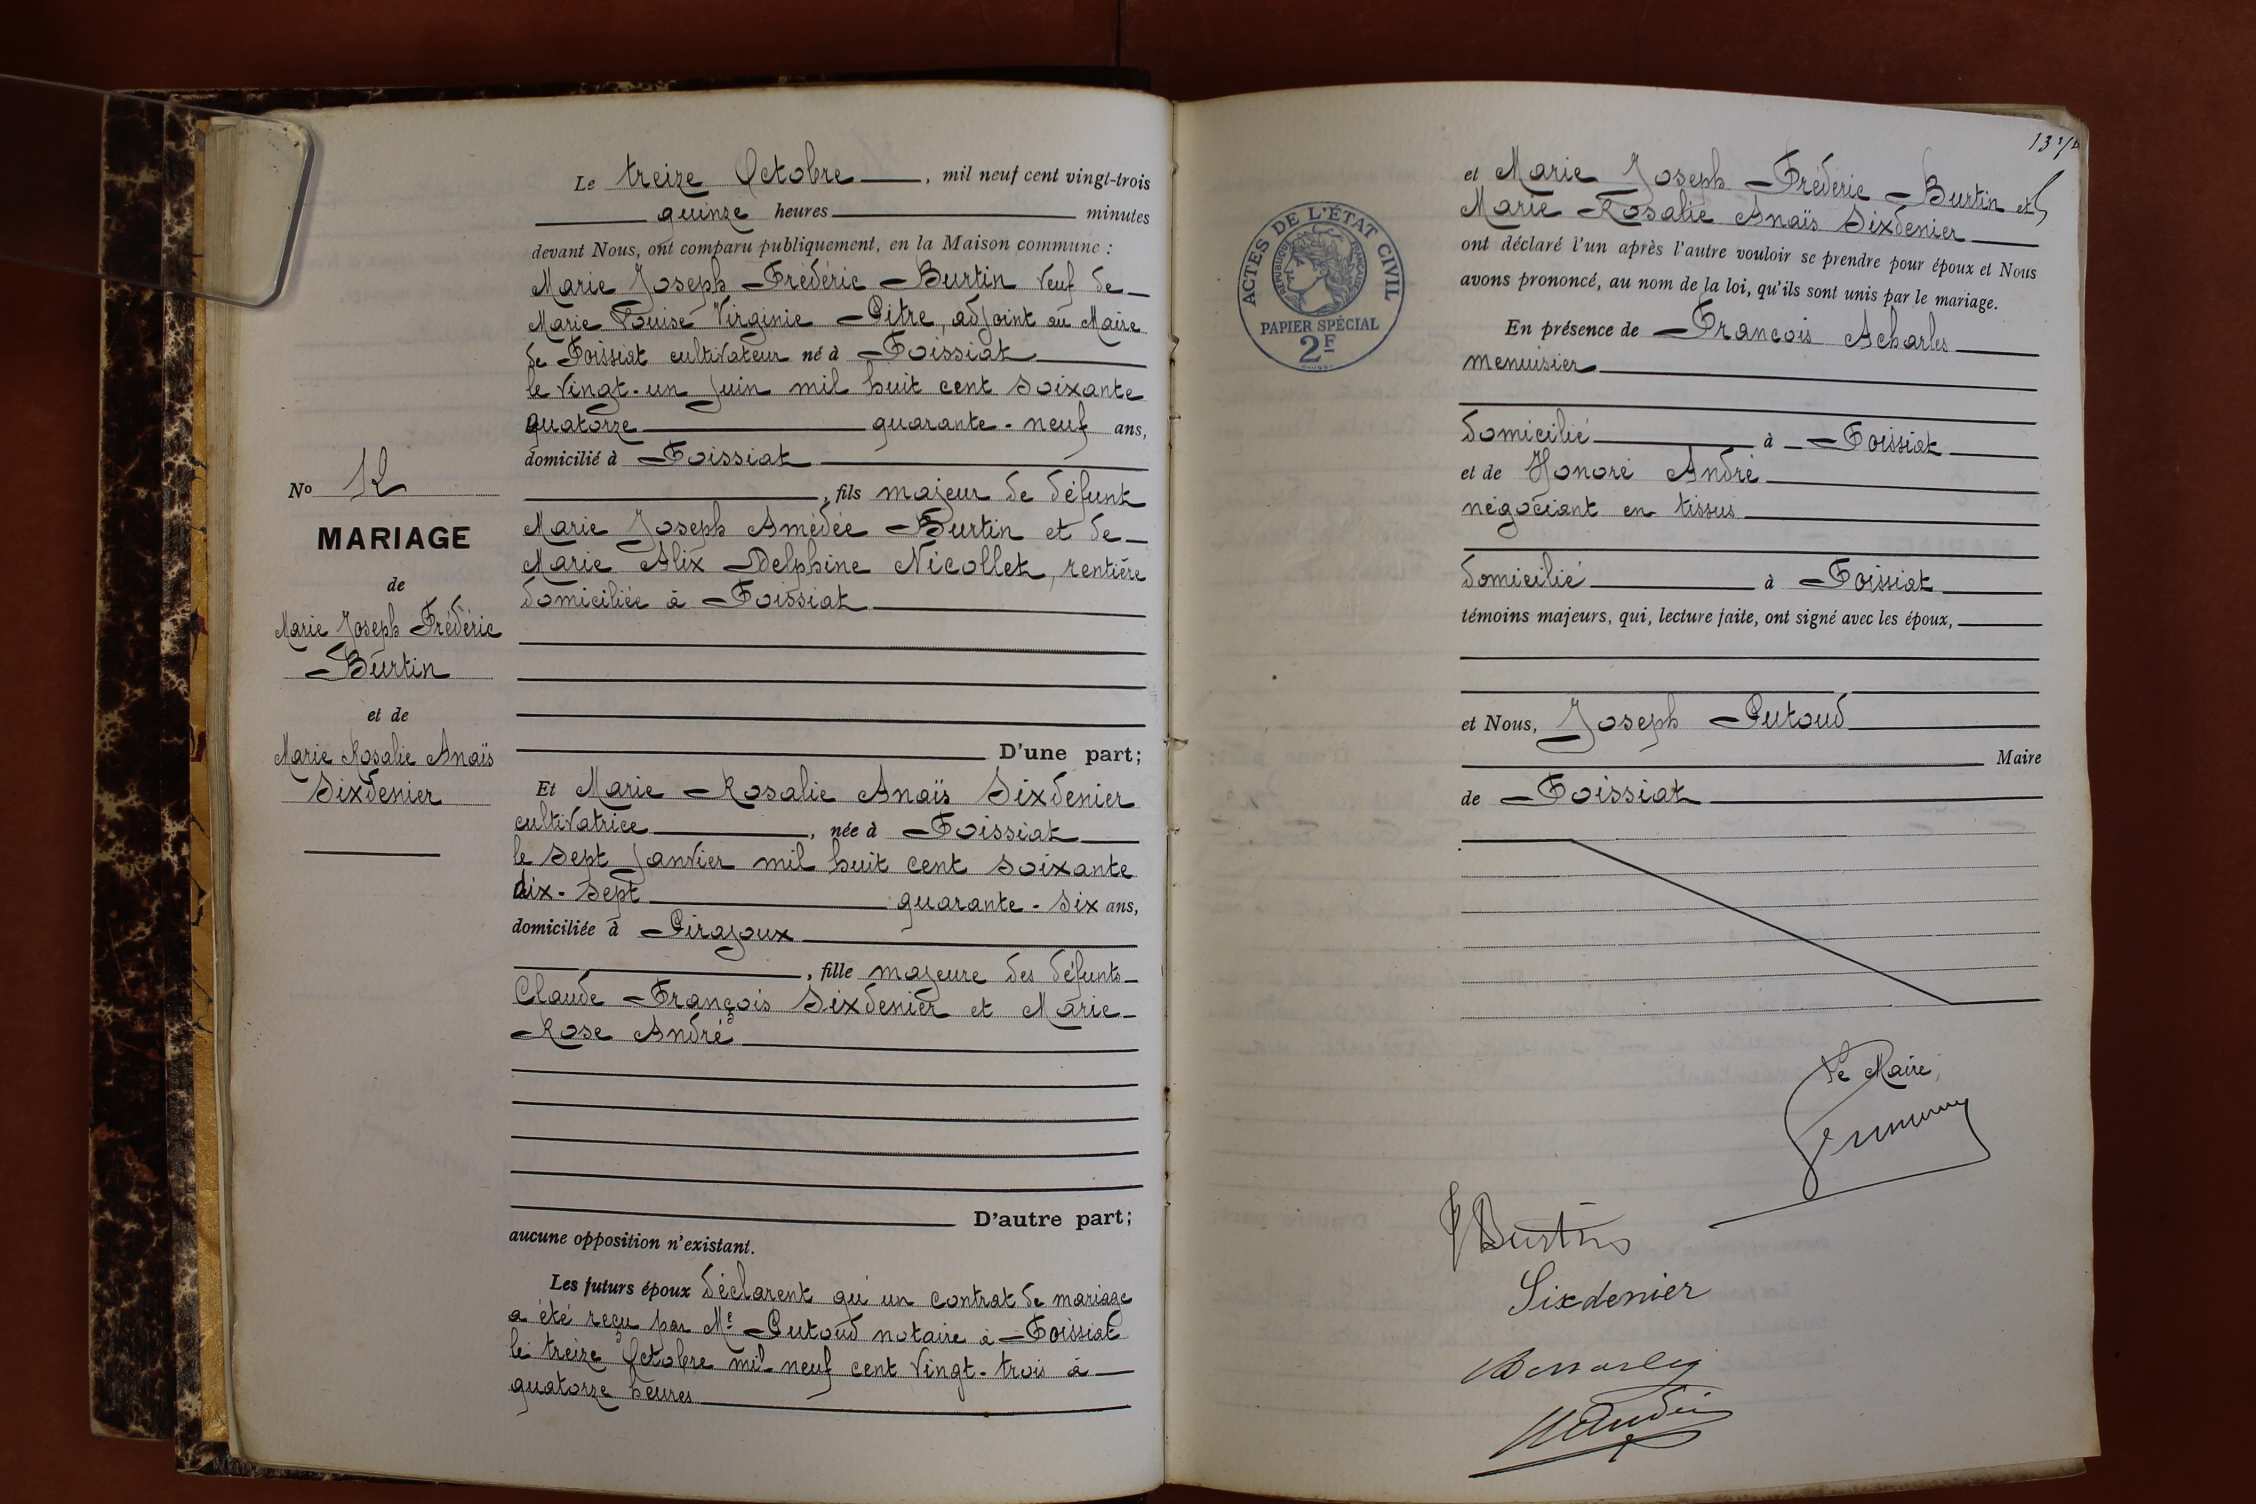 Le treize Octobre, mil neuf cent vingt-trois
quinze heures minutes
devant Nous, ont comparu publiquement, en la Maison commune :
Marie Joseph Frédéric Burtin veuf de
Marie Louise Virginie Pitre, adjoint au Maire
de Foissiat cultivateur né à Foissiat
le vingt-un juin mil huit cent soixante
quatorze quarante-neuf ans,
domicilié à Foissiat
, fils majeur de défunt
Marie Joseph Amédée Burtin et de
Marie Alix Delphine Nicollet, rentière
domiciliée à Foissiat
D'une part;
Et Marie Rosalie Anaïs Sixdenier
cultivatrice, née à Foissiat
le sept janvier mil huit cent soixante
dix-sept quarante-six ans,
domiciliée à Pirajoux
, fille majeure des défunts
Claude François Sixdenier et Marie
Rose André
D'autre part;
aucune opposition n'existant.
Les futurs époux déclarent qu'un contrat de mariage
a été reçu par Me Putoud notaire à Foissiat
le treize Octobre mil neuf cent vingt-trois à
quatorze heures
No 12
MARIAGE
de
Marie Joseph Frédéric
Burtin
et de
Marie Rosalie Anaïs
Sixdenier
ACTES DE L'ÉTAT CIVIL
RÉPUBLIQUE FRANÇAISE
PAPIER SPÉCIAL
2F
et Marie Joseph Frédéric Burtin et
Marie Rosalie Anaïs Sixdenier
ont déclaré l'un après l'autre vouloir se prendre pour époux et Nous
avons prononcé, au nom de la loi, qu'ils sont unis par le mariage.
En présence de François Acharles
menuisier
domicilié à Foissiat
et de Honoré André
négociant en tissus
domicilié à Foissiat
témoins majeurs, qui, lecture faite, ont signé avec les époux,
et Nous, Joseph Putoud
Maire
de Foissiat
Le Maire,
Burtin
Sixdenier